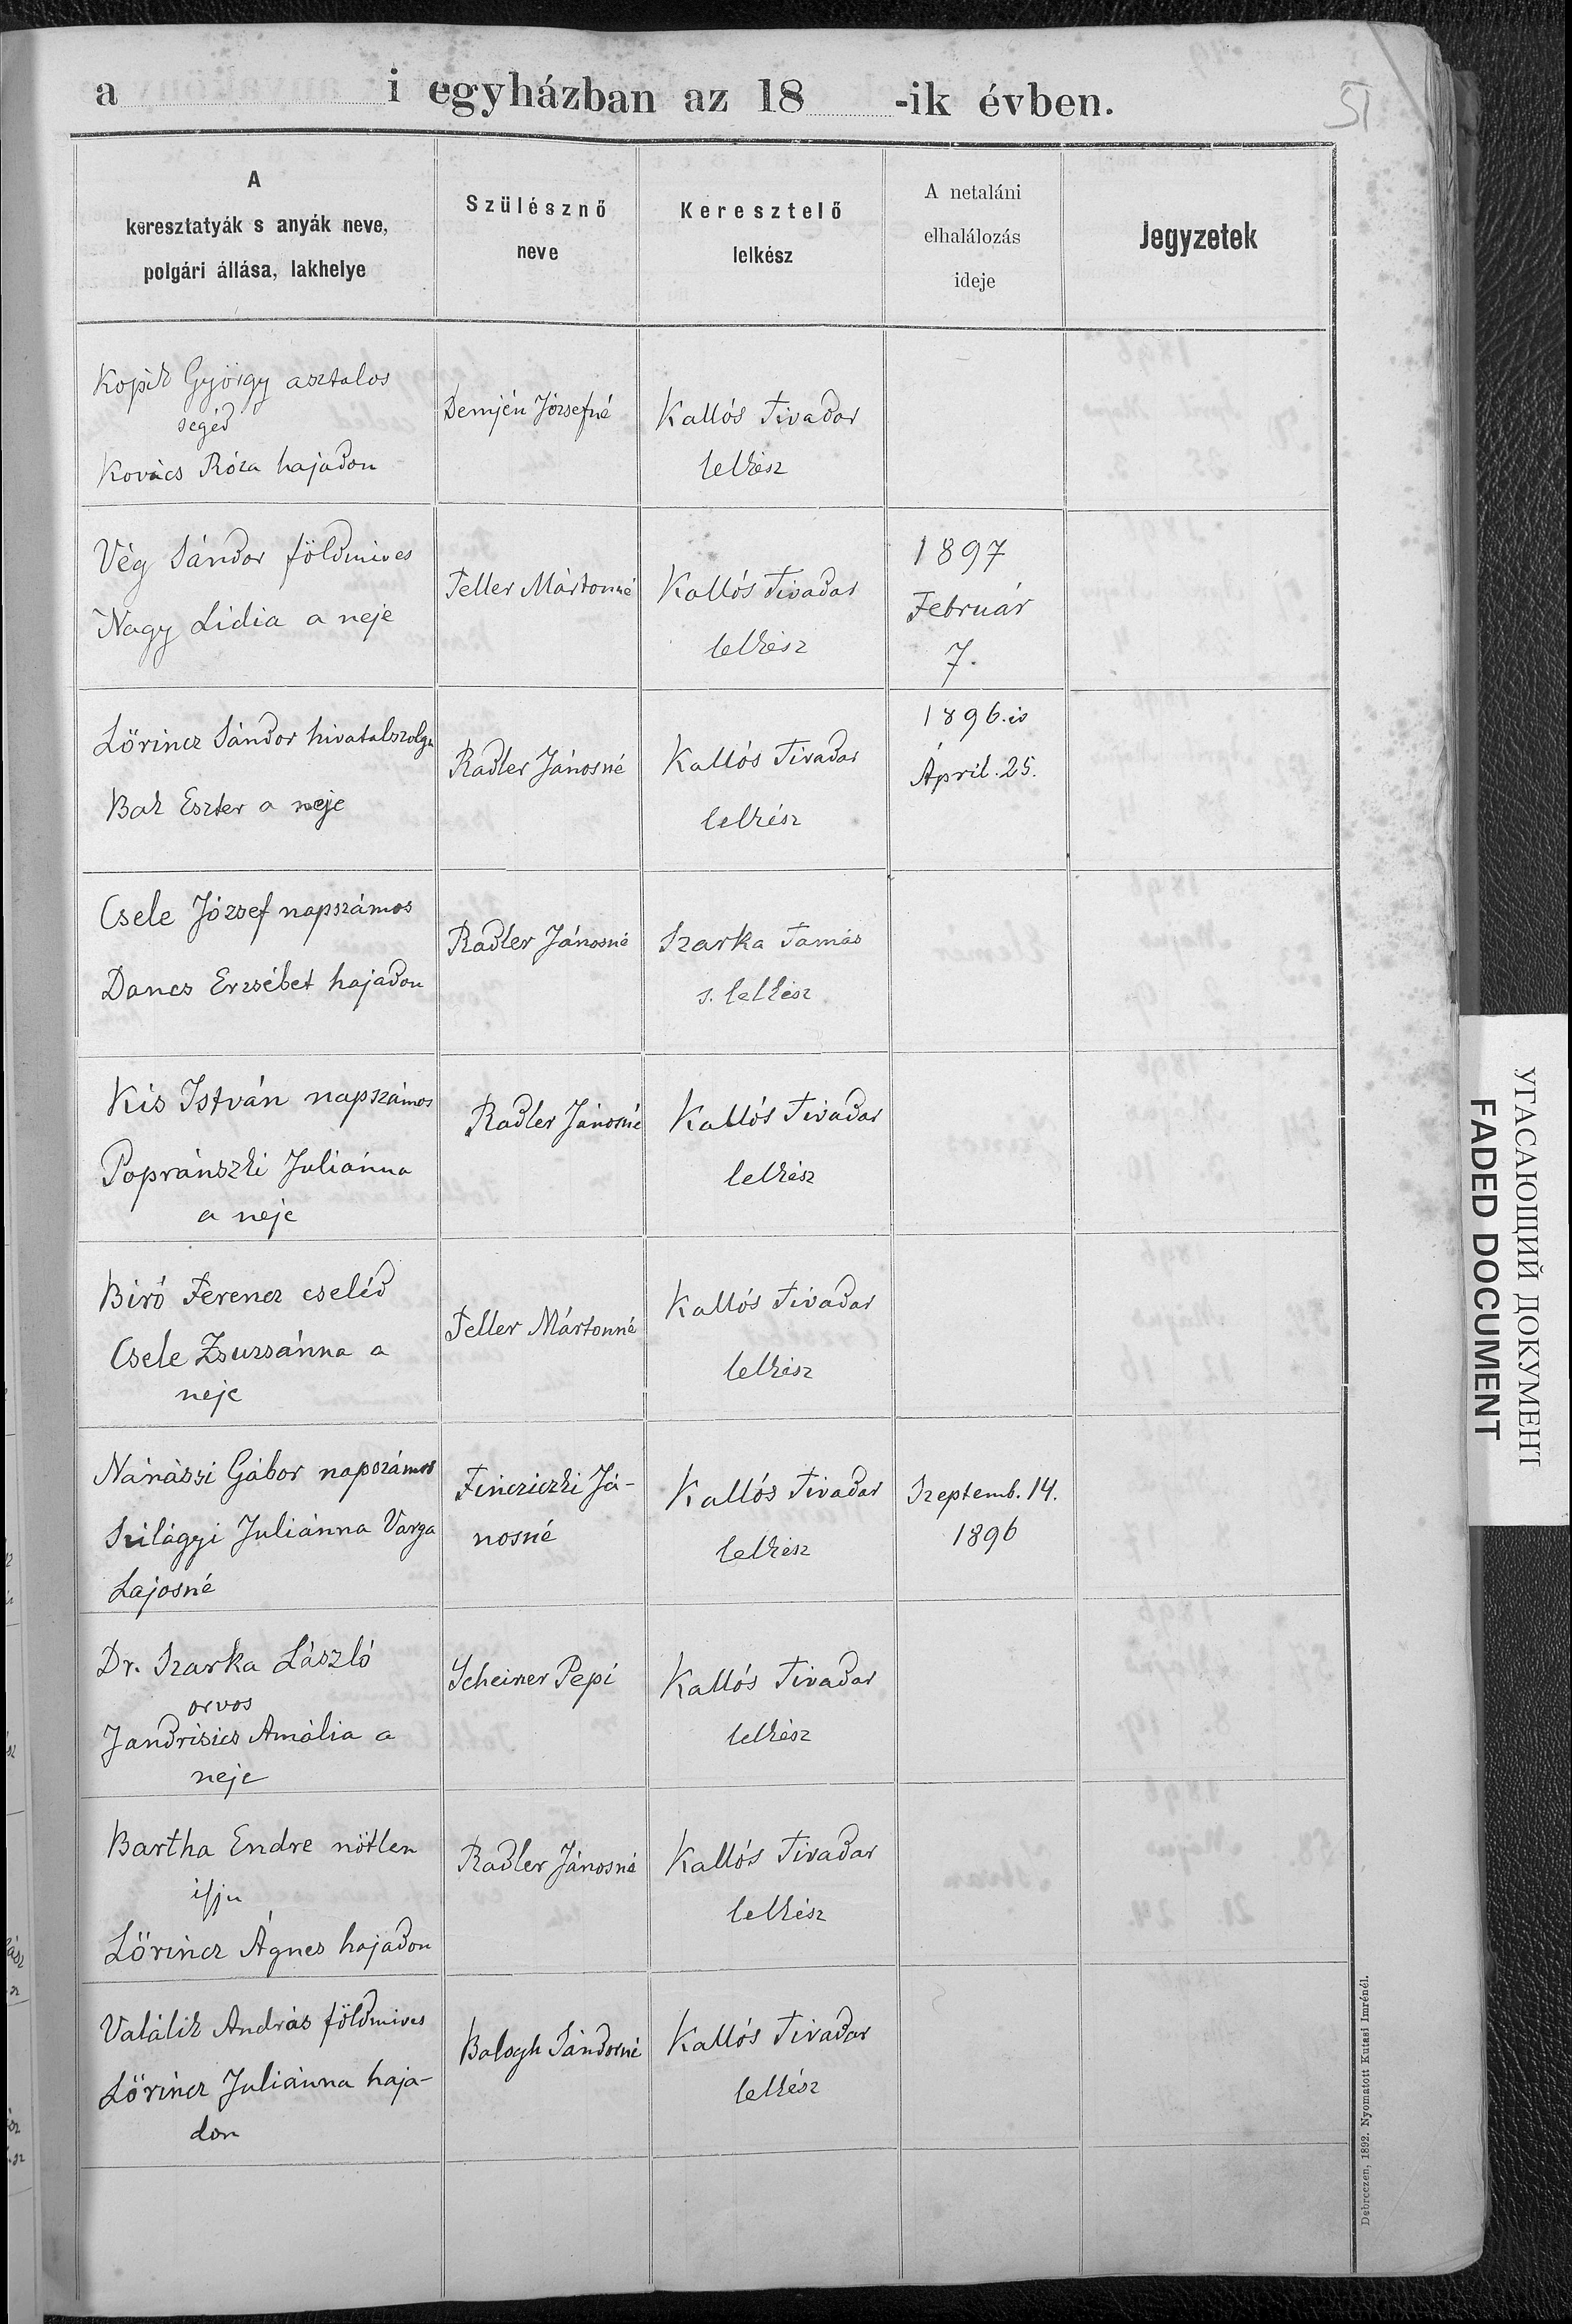 a i egyházban az 18 -ik évben.
51
A
keresztatyák s anyák neve,
polgári állása, lakhelye
Szülésznő
neve
Keresztelő
lelkész
A netaláni
elhalálozás
ideje
Jegyzetek
Kopik György asztalos
segéd
Kovács Róza hajadon
Demjén Józsefné
Kallós Tivadar
lelkész
Vég Sándor földmives
Nagy Lidia a neje
Teller Mártonné
Kallós Tivadar
lelkész
1897
Február
7.
Lőrincz Sándor hivatalszolga
Bak Eszter a neje
Radler Jánosné
Kallós Tivadar
lelkész
1896.is
Ápril. 25.
Csele József napszámos
Dancs Erzsébet hajadon
Radler Jánosné
Szarka Tamás
s. lelkész
Kis István napszámos
Popránszki Juliánna
a neje
Radler Jánosné
Kallós Tivadar
lelkész
Biró Ferencz cseléd
Csele Zsuzsánna a
neje
Teller Mártonné
Kallós Tivadar
lelkész
Nánássi Gábor napszámos
Szilágyi Juliánna Varga
Lajosné
Fincziczki Já-
nosné
Kallós Tivadar
lelkész
Szeptemb. 14.
1896
Dr. Szarka László
orvos
Jandrisics Amália a
neje
Scheiner Pepi
Kallós Tivadar
lelkész
Bartha Endre nőtlen
ifju
Lőrincz Ágnes hajadon
Radler Jánosné
Kallós Tivadar
lelkész
Valálik András földmives
Lőrincz Juliánna haja-
don
Balogh Sándorné
Kallós Tivadar
lelkész
Debreczen, 1892. Nyomatott Kutasi Imrénél.
УГАСАЮЩИЙ ДОКУМЕНТ
FADED DOCUMENT